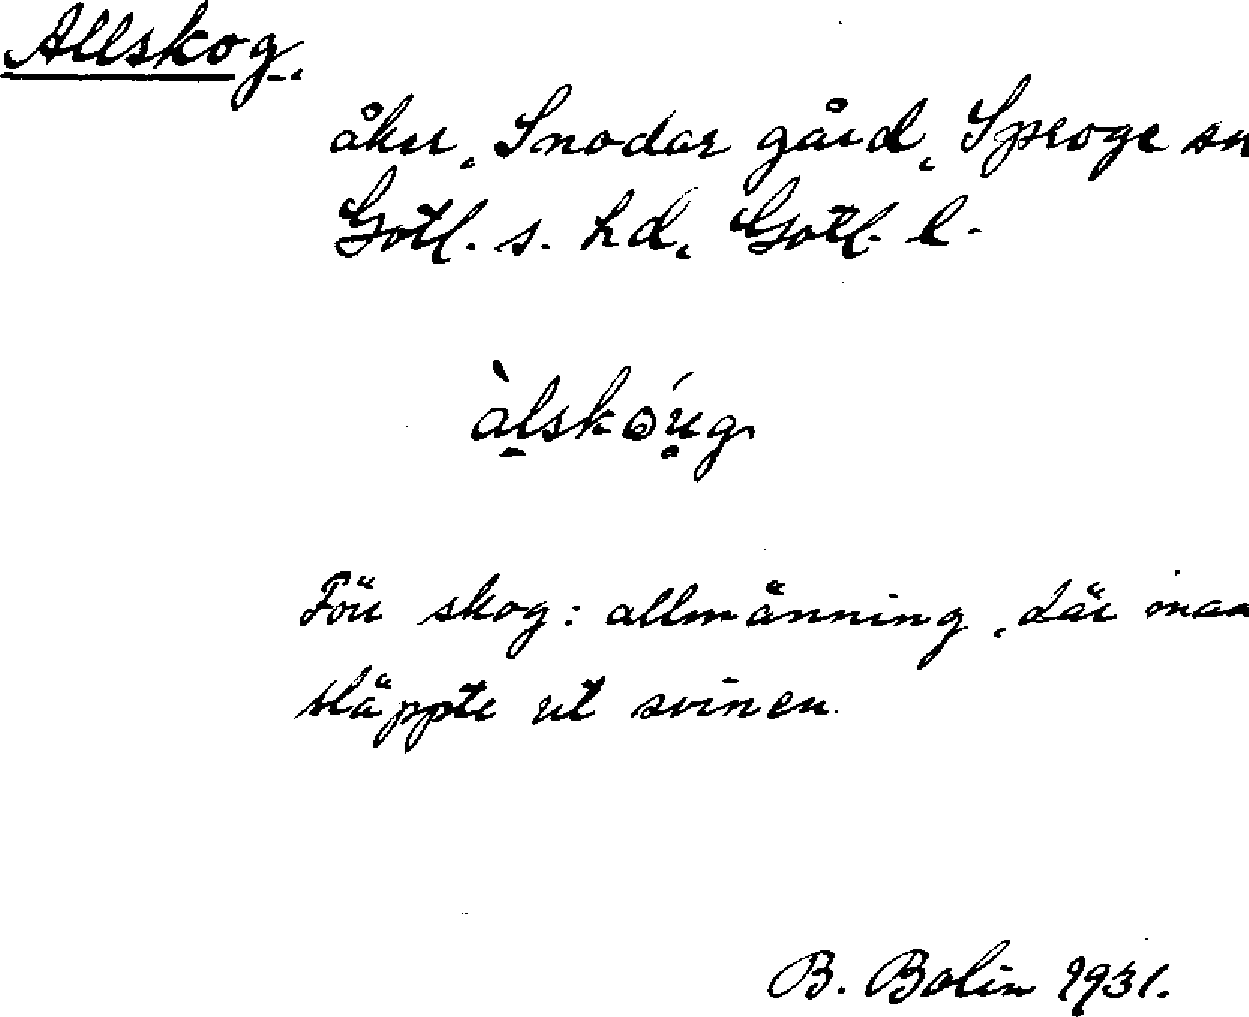 Allskog.
åker, Snodar gård, Sproge sn
Gotl. s. hd, Gotl. l.
àl̠skóu̥g
Förr skog: allmänning, där man
släppte ut svinen.
B. Bolin 1931.